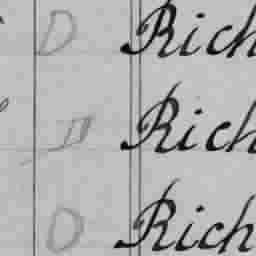 D Rich
D Rich
D Rich